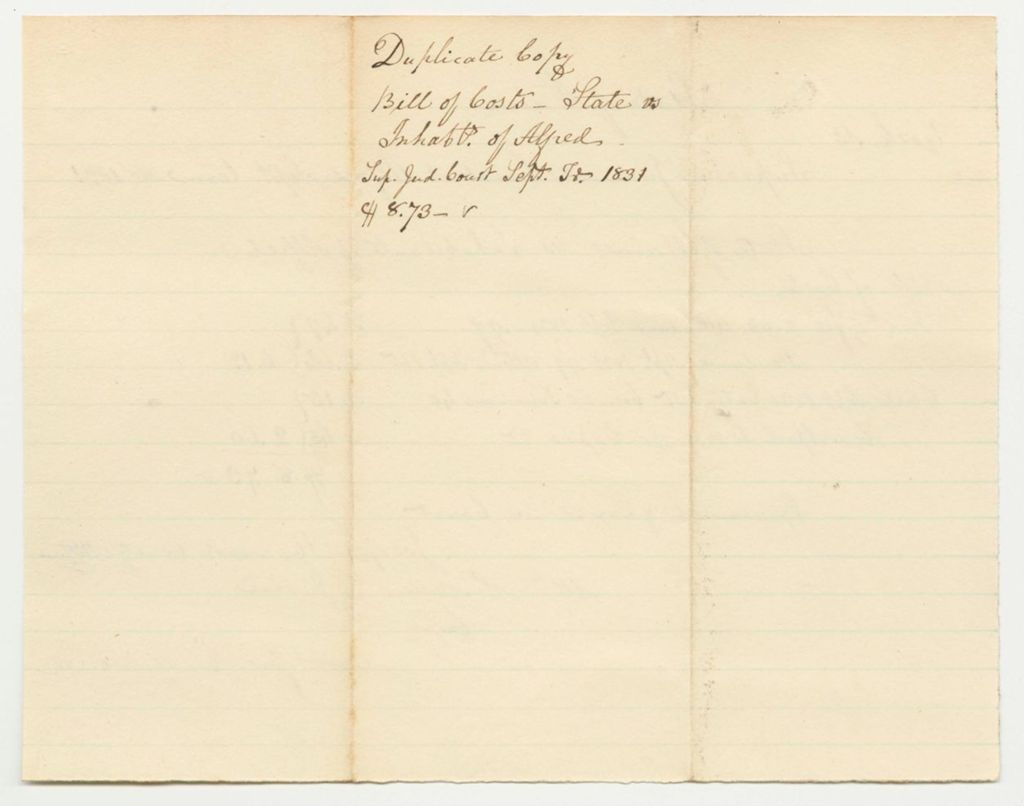 Duplicate Copy
&
Bill of Costs – State vs
Inhabts. of Alfred
Sup. Jud. Court Sept. Tr. 1831
$8.73–